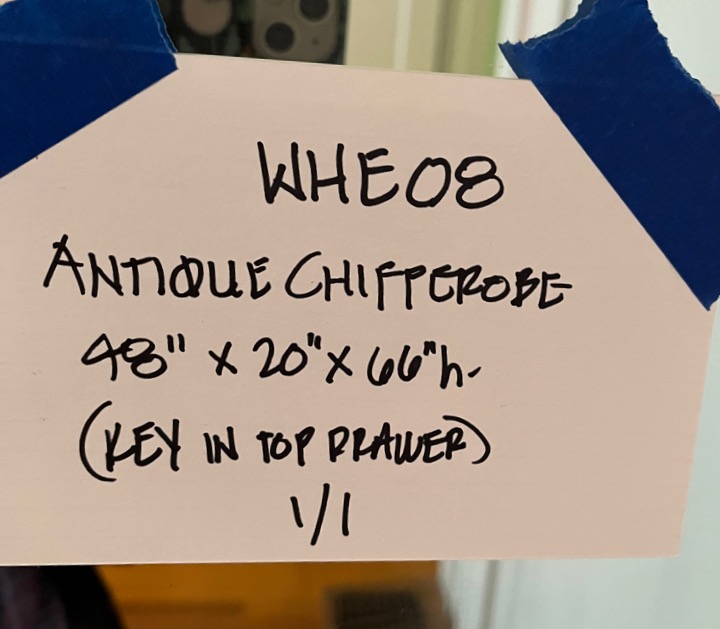 WHE08
ANTIQUE CHIFFEROBE
48" x 20" x 66"h.
(KEY IN TOP DRAWER)
1/1